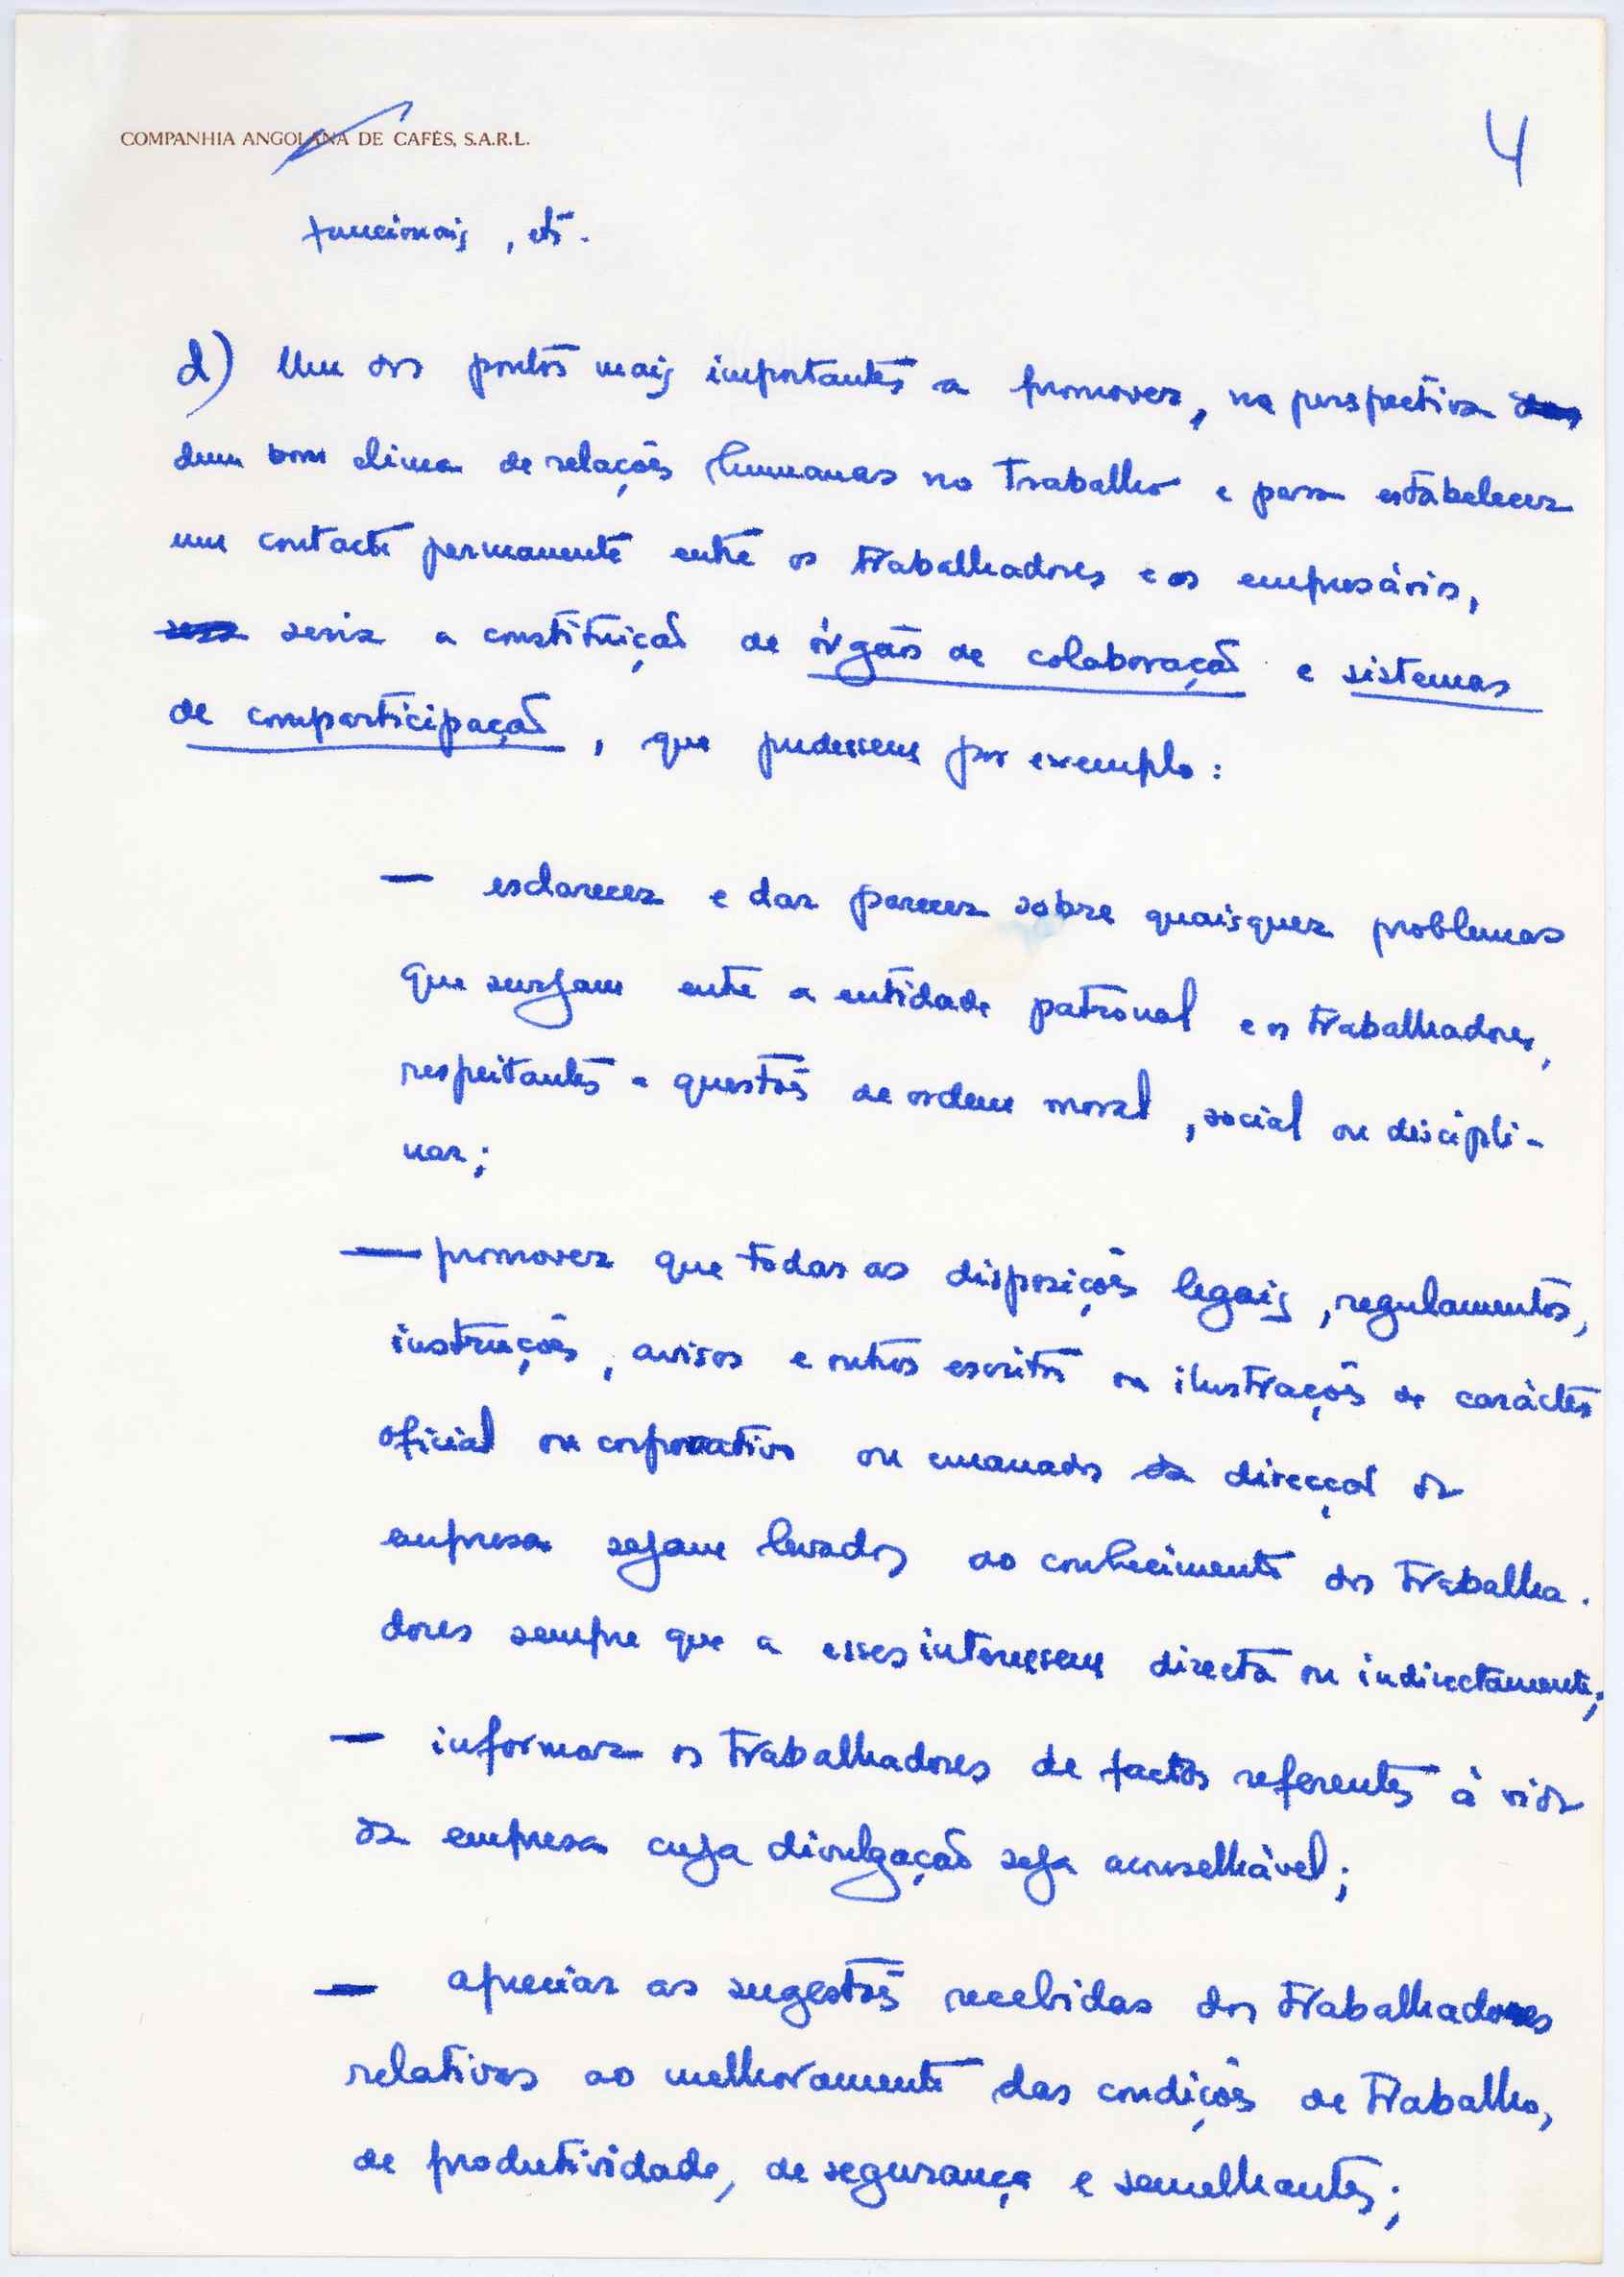 COMPANHIA ANGOLANA DE CAFÉS, S.A.R.L.
4
funcionais, etc.
d) Um dos pontos mais importantes a promover, na perspectiva
dum bom clima de relações humanas no trabalho e para estabelecer
um contacto permanente entre os trabalhadores e os empresários,
seria a constituição de órgãos de colaboração e sistemas
de comparticipação, que pudessem por exemplo:
— esclarecer e dar parecer sobre quaisquer problemas
que surjam entre a entidade patronal e os trabalhadores,
respeitantes a questões de ordem moral, social ou discipli-
nar;
— promover que todas as disposições legais, regulamentos,
instruções, avisos e outros escritos ou ilustrações de carácter
oficial ou corporativo ou emanados da direcção da
empresa sejam levados ao conhecimento dos trabalha-
dores sempre que a esses interessem directa ou indirectamente;
— informar os trabalhadores de factos referentes à vida
da empresa cuja divulgação seja aconselhável;
— apreciar as sugestões recebidas dos trabalhadores
relativas ao melhoramento das condições de trabalho,
de produtividade, de segurança e semelhantes;